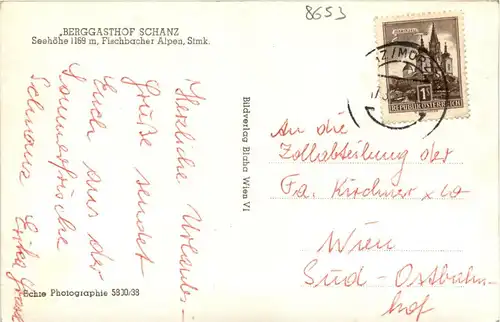 „BERGGASTHOF SCHANZ
Seehöhe 1169 m, Fischbacher Alpen, Stmk.
8653
REPUBLIK ÖSTERREICH
1
Herzliche Urlaubs-
Grüße sendet
Euch aus der
Sommerfrische
Schwanz Erika
Bildverlag Blaha Wien VI
An die
Zollabteilung der
Fa. Kirchner & Co
Wien
Süd-Ostbahn-
hof
Echte Photographie 5830/38